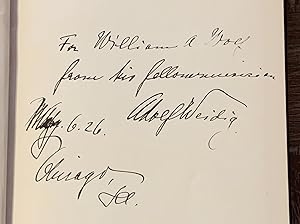 For William A Wolf
from his fellowmusician
Adolf Weidig
May. 6. 26.
Chicago,
Ill.